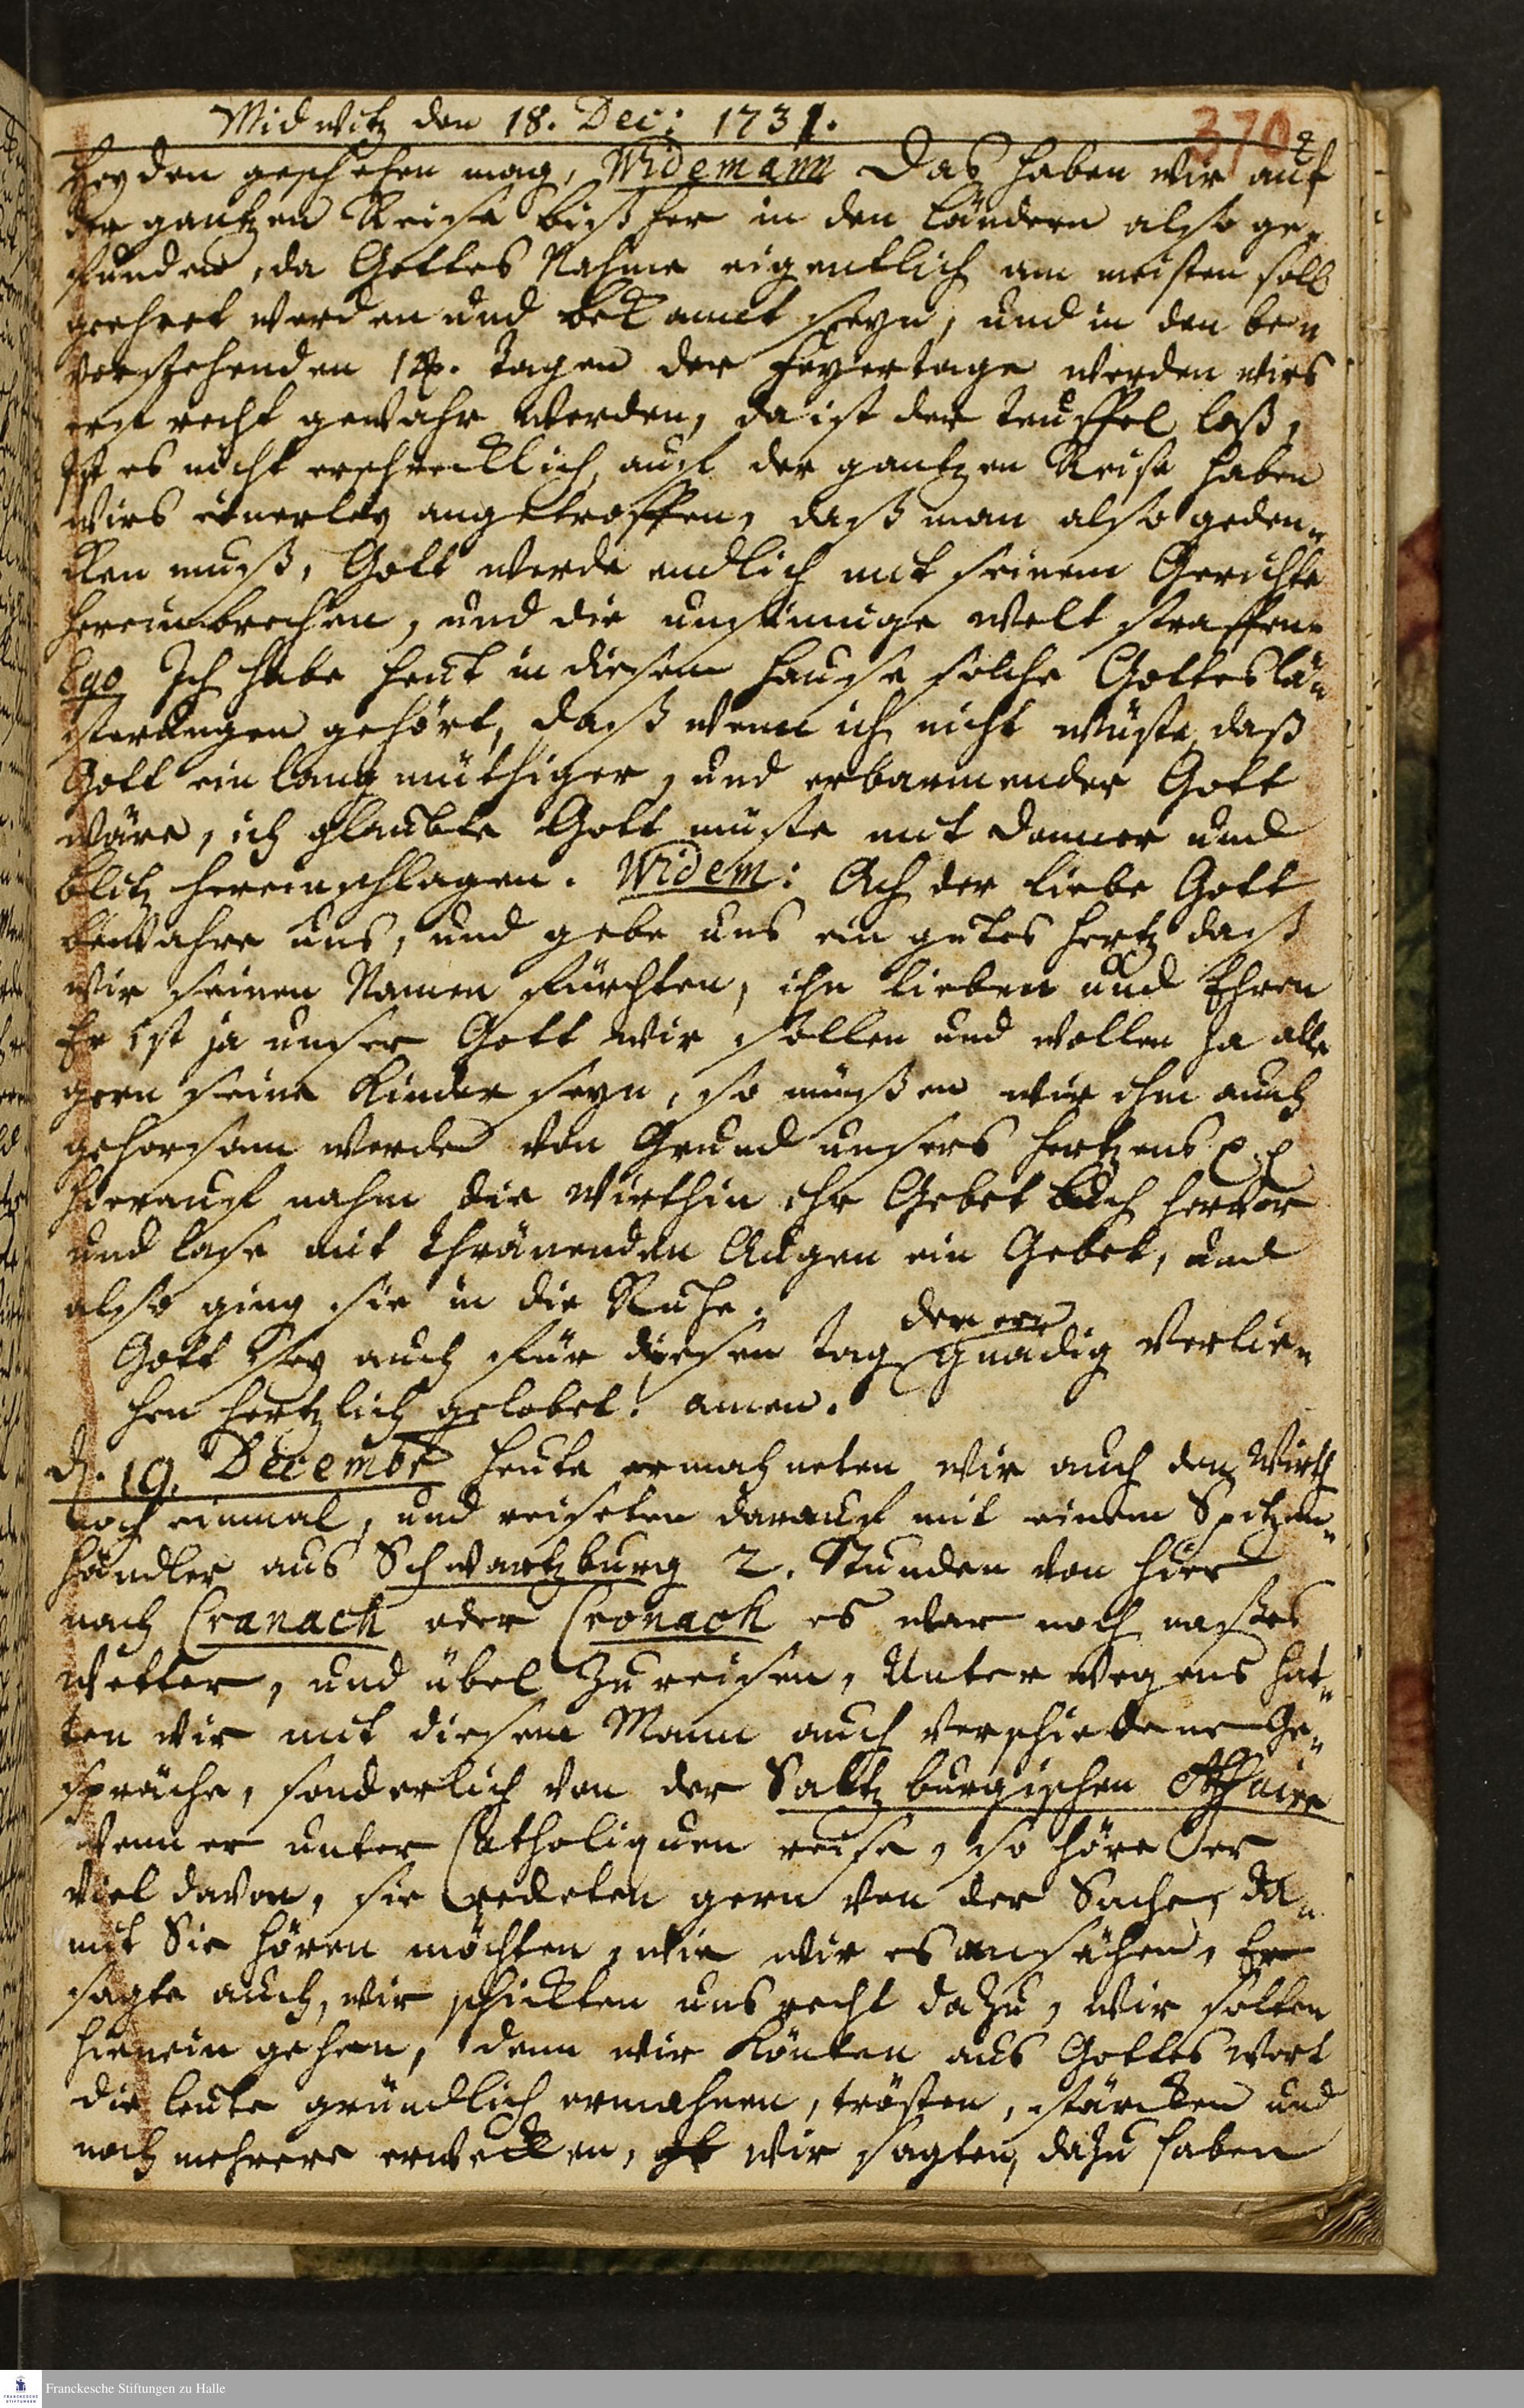 Midwitz den 18. Dec: 1731.
370
2
Heyden geschehen mag, Widemann Das haben wir auf
der gantzen Reise bißher in den Ländern also ge-
funden, da Gottes Nahme eigentlich am meisten soll
geehret werden und bekannt seyn, und in den be-
vorstehenden 14. Tagen der Feyertage werden wirs
erst recht gewahr werden, da ist der Teuffel loß,
Ist es nicht erschrecklich, auf der gantzen Reise haben
wirs einerley angetroffen, daß man also geden-
cken muß, Gott werde endlich mit seinem Gerichte
hereinbrechen, und die unsinnige Welt straffen.
Ego Ich habe heut in diesem Hause solche Gotteslä-
sterungen gehört, daß wenn ich nicht wüste, daß
Gott ein langmüthiger, und erbarmender Gott
wäre, ich glaubte Gott müste mit Donner und
Blitz hereinschlagen. Widem: Ach der liebe Gott
bewahre uns, und gebe uns ein gutes Hertz daß
wir seinen Namen fürchten, ihn lieben und Ehren
Er ist ja unser Gott wir sollen und wollen ja alle
gern seine Kinder seyn, so müßen wir ihm auch
gehorsam werden von Grund unsers Hertzens p.p
Hierauf nahm die Wirthin ihr Gebet buch hervor
und lase mit thränenden Augen ein Gebet, und
also ging sie in die Ruhe.
Gott sey auch für diesen Tag, den er gnädig verlie-
hen hertzlich gelobet! amen.
d. 19. Decembr Heute ermahneten wir auch den Wirth
noch einmal, und reiseten darauf mit einem Spitzen-
händler aus Schwartzburg 2. Stunden von hier
nach Cranach oder Cronach es war noch naßes
Wetter, und übel zu reisen, Unter wegens hat-
ten wir mit diesem Mann auch verschiedene Ge-
spräche, sonderlich von der Saltzburgischen Affaire
wenn er unter Catholiquen reise, so höre er
viel davon, sie redeten gern von der Sache, da-
mit Sie hören möchten, wie wir es ansähen, Er
sagte auch, wir schickten uns recht dazu, wir solten
hienein gehen, denn wir könten aus Gottes Wort
die Leute gründlich ermahnen, trösten, stärcken und
noch mehrere erwecken, wir sagten, dazu haben
Franckesche Stiftungen zu Halle